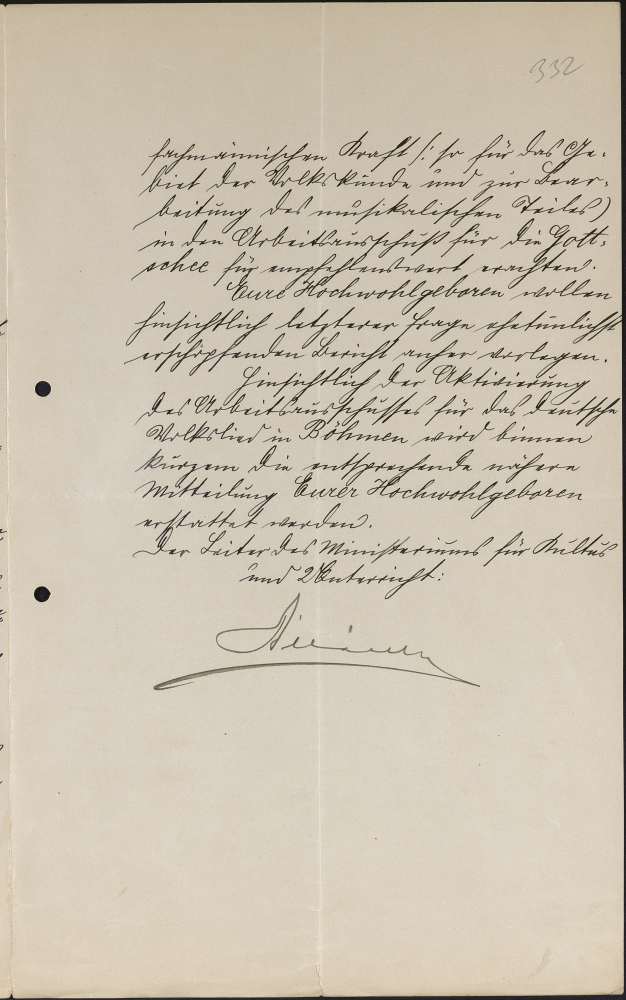 332
fachmännischen Kraft /: so für das Ge-
biet der Volkskunde und zur Bear-
beitung des musikalischen Teiles)
in den Arbeitsausschuß für die Gott-
schee für empfehlenswert erachten.
Eure Hochwohlgeboren wollen
hinsichtlich letzterer Frage ehetunlichst
erschöpfenden Bericht anher vorlegen.
Hinsichtlich der Aktivierung
des Arbeitsausschusses für das deutsche
Volkslied in Böhmen wird binnen
kurzem die entsprechende nähere
Mitteilung Eurer Hochwohlgeboren
erstattet werden.
Der Leiter des Ministeriums für Kultus
und Unterricht: